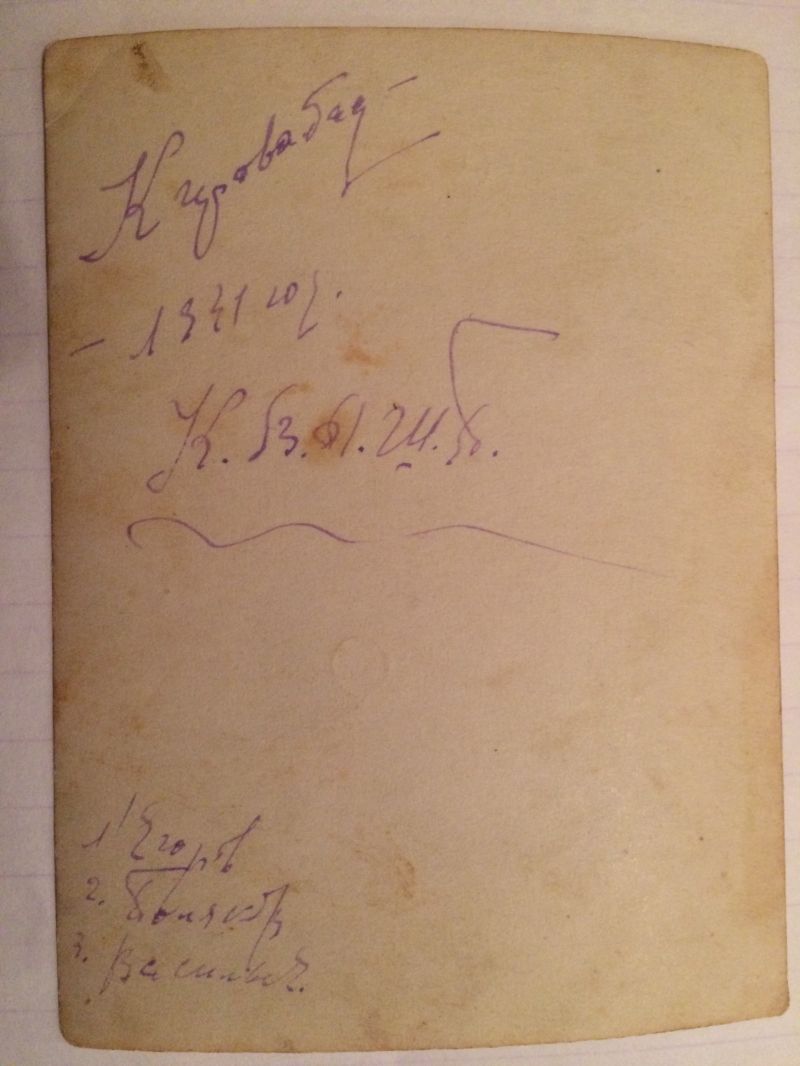 Кировабад
- 1941 год.
К.
1 Егоров
2. Поляков
3. Василье